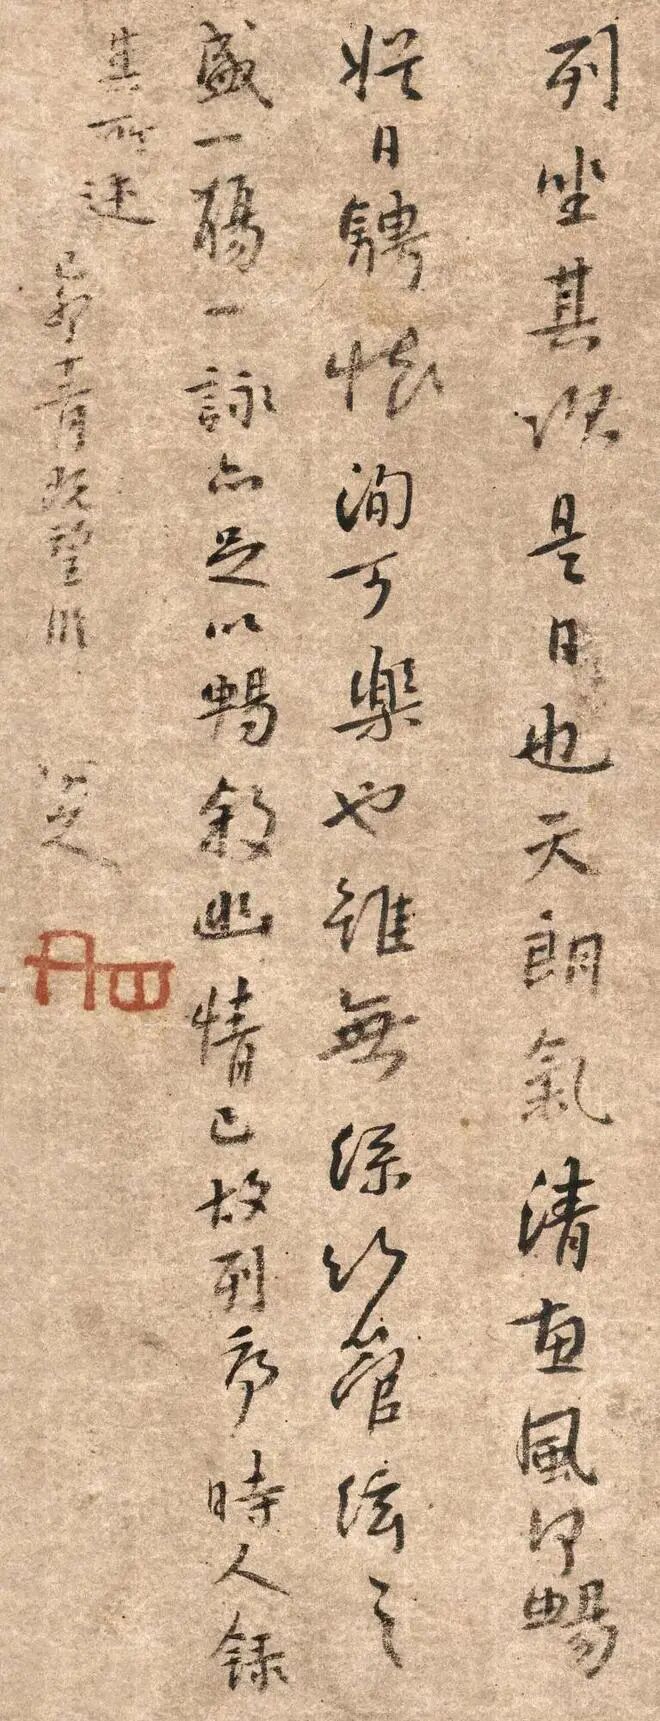 列坐其次是日也天朗氣清惠風和暢
娛日騁懷洵可樂也雖無絲竹管絃之
盛一觴一詠亦足以暢敘幽情已故列序時人錄
其所述
己卯月既望臨
八大山人